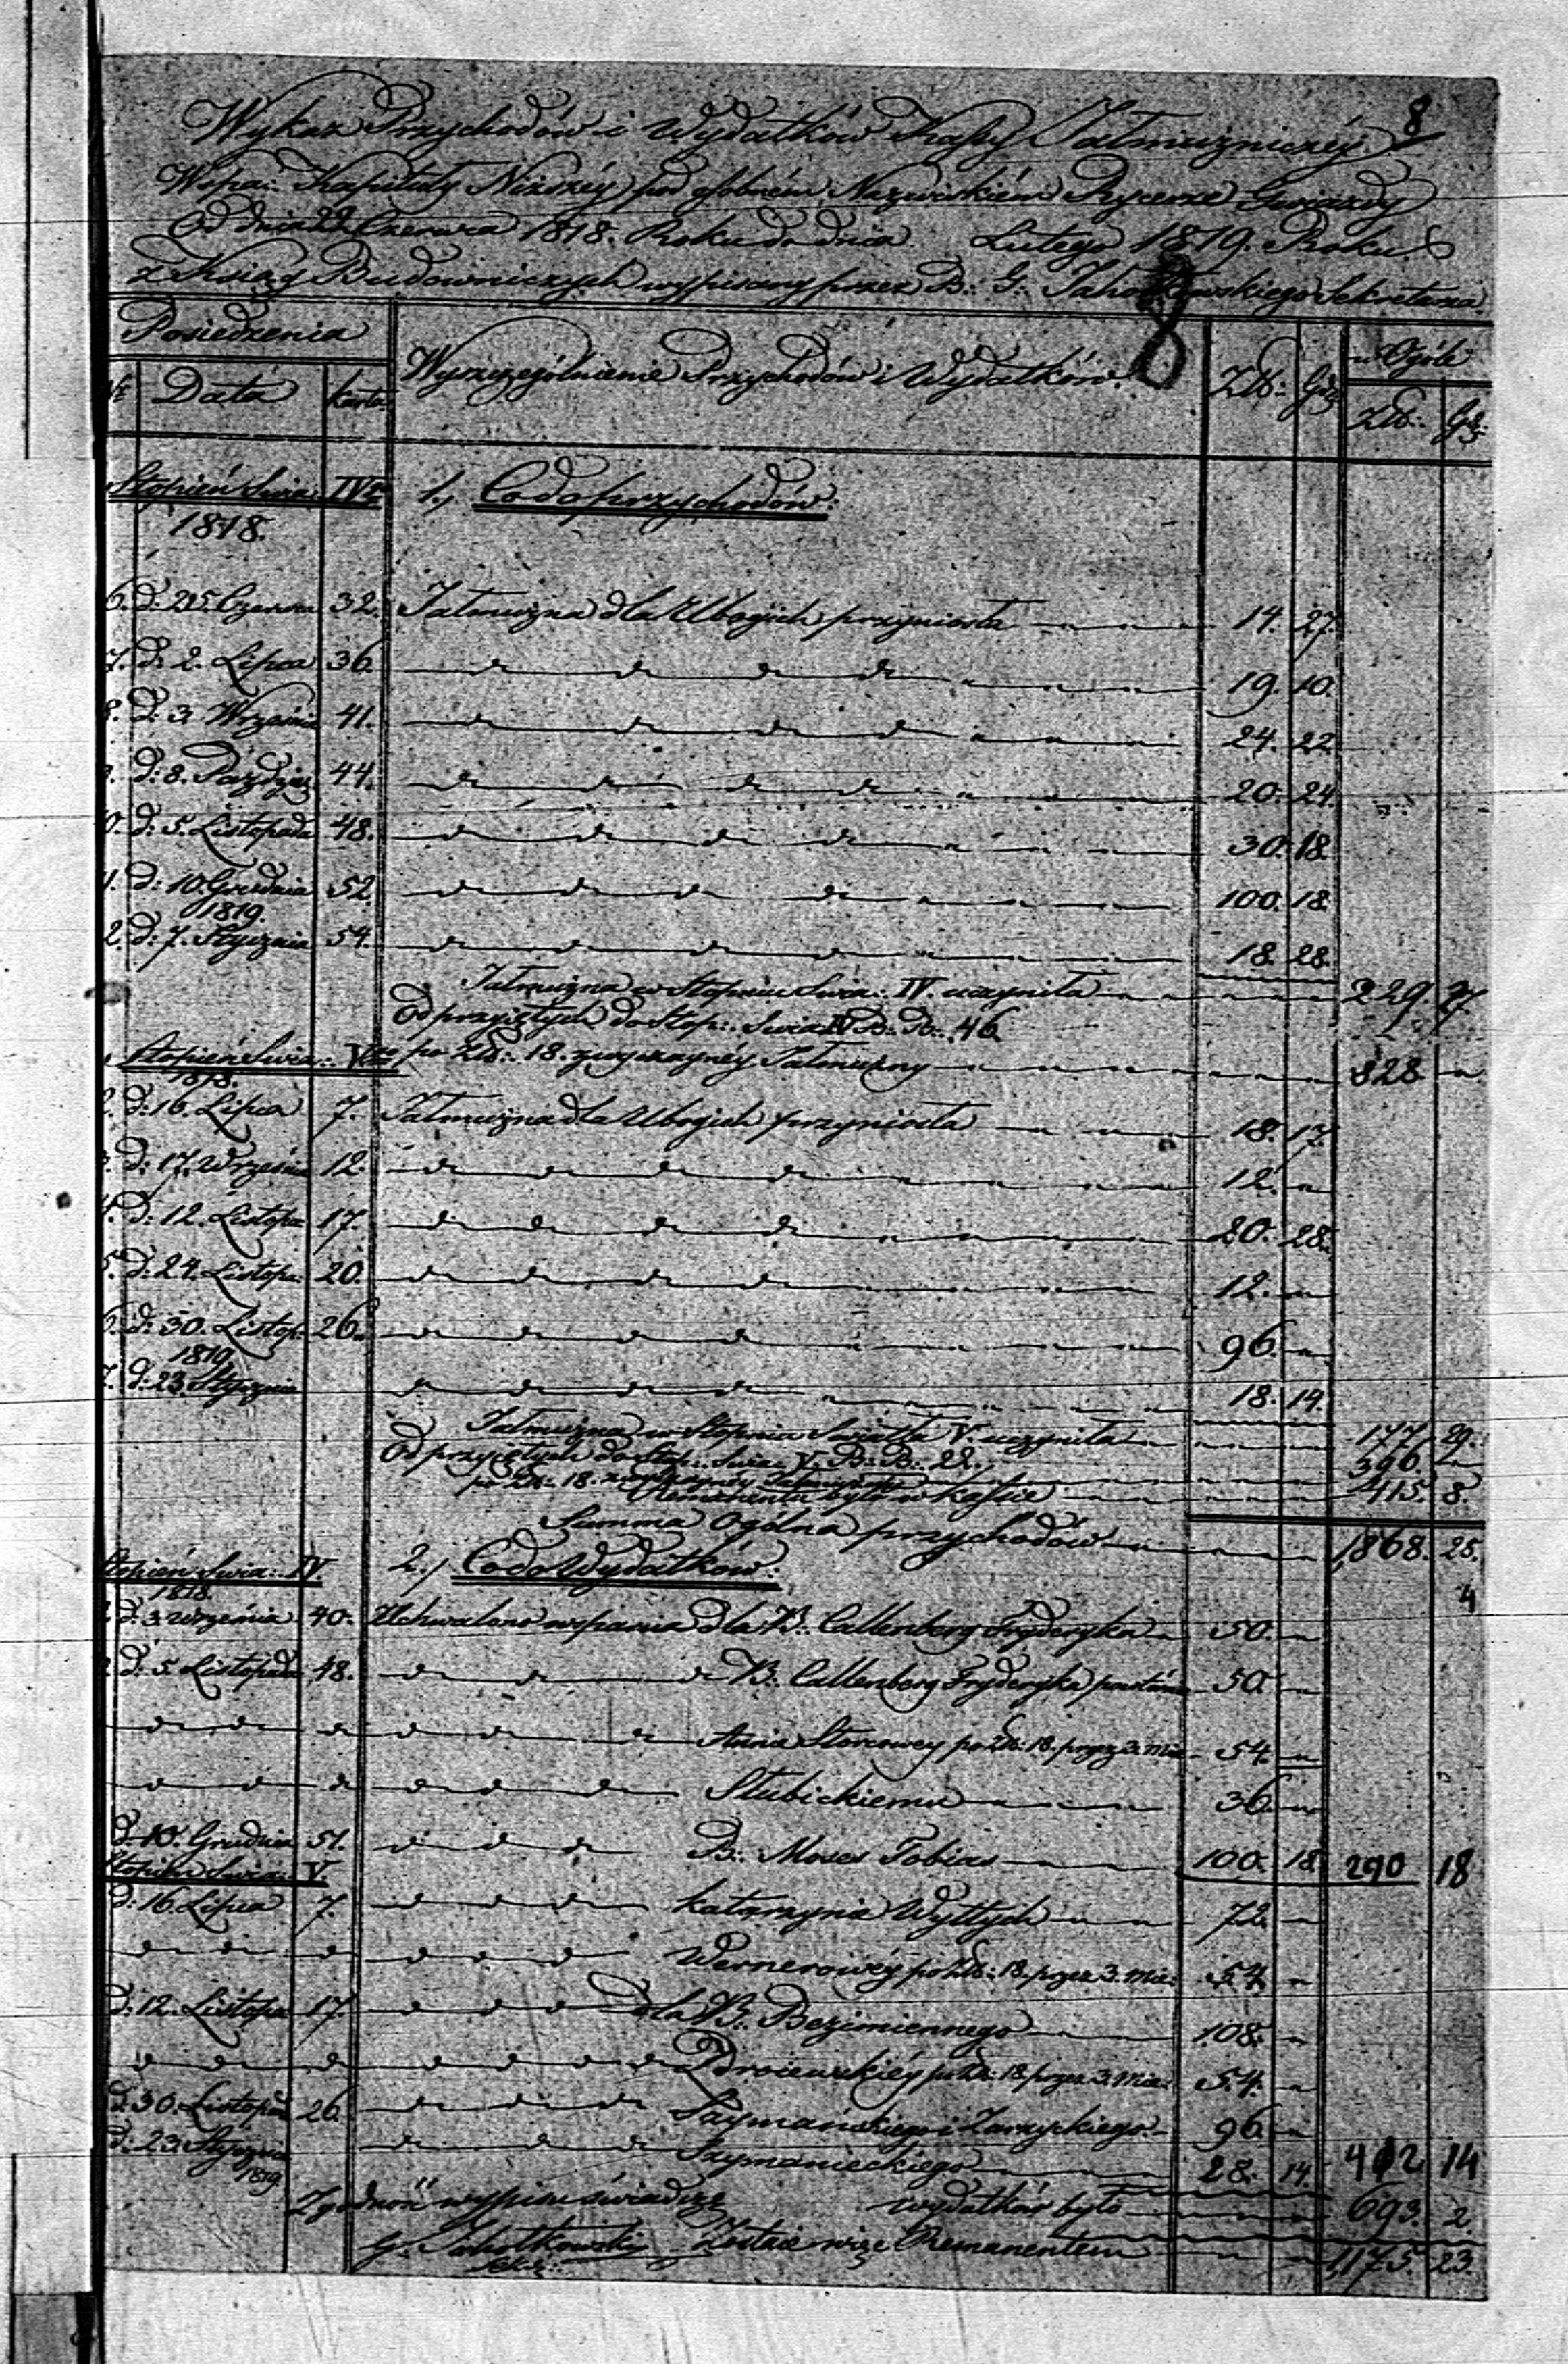 8
Wykaz Przychodów i Wydatków Kassy Jałmużniczéy
Wspa: Kapituły Niższéy pod osobném Nazwiskiém Rycerze Gwiazdy
Od dnia 22 Czerwca 1818. Roku do dnia Lutego 1819. Roku
z Ksiąg Budowniczych wypisany przez B: G: Sekretarza
8
Posiedzenia
Wyszczególnienie Przychodów i Wydatków.
w Ogóle
Data karta Złt: Gr: Złt: Gr:
Stopień Swia: IV
1.) Co do przychodów:
1818.
6. d: 25. Czerwca 32. Jałmużna dla Ubogich przyniosła 14. 27.
7. d: 2. Lipca 36. d d d d 19. 10.
8. d: 3. Września 41. d d d d 24. 22.
9. d: 8. Paźdz: 44. d d d d 20. 24.
0. d: 5. Listopada 48. d d d d 30. 18.
1. d: 10. Grudnia 52. d d d d 100. 18.
1819.
2. d: 7. Stycznia 54. d d d d 18. 28.
Jałmużna w Stopniu Swia: IV. uczyniła 229. 27.
Od przyjętych do Stop: Swia: IV B: B: 46
po Złt: 18. zwyczaynéy Jałmużny 828. "
Stopień Swia: V
1818.
2. d: 16. Lipca 7. Jałmużna dla Ubogich przyniosła 18. 17.
3. d: 17. Września 12. d d d d 12. "
4. d: 12. Listopa: 17. d d d d 20. 28.
5. d: 24. Listopa: 20. d d d d 12. "
6. d: 30. Listop: 26. d d d d 96. "
1819
7. d: 23. Stycznia d d d d 18. 14.
Jałmużna w Stopniu Swiatła V. uczyniła 177. 29.
Od przyjętych do Stop: Swia: V. B: B: 22.
po Złt: 18. zwyczaynéy Jałmużny 396. "
Remanentu było w Kassie 415. 8.
Summa Ogólna przychodów 1868. 25.
4
Stopień Swia: IV
2.) Co do Wydatków:
1818.
d: 3. Września 40. Uchwalono wsparcia dla B: Callenberg Fryderyka 50. "
d: 5. Listopada 48. d d d B: Callenberg Fryderyka 50. "
d d d d d d Annie Storcowey po Złt: 18. przez 3. Mie: 54. "
d d d d d d Słubickiemu 36. "
d: 10. Grudnia 51. d d d B: Moses Tobias 100. 18. 290 18
Stopień Swia: V.
d: 16. Lipca 7. d d d Katarzynie Wyttych 72. "
d d d d d d Wernerowéy po Złt: 18. przez 3. Mie: 54. "
d: 12. Listopa 17. d d d dla B: Bezimiennego 108. "
d d d d d d d Zdroiewskiéy po Złt: 18. przez 3. Mie: 54. "
d: 30. Listopa 26. d d d Szymańskiego i Zarzyckiego 96. "
d: 23. Stycznia d d d Szymanieckiego 28. 14. 412 14
1819
Zgodność wypisu świadczę wydatków było 693. 2.
Zostaie więc Remanentem 1,175. 23.
Sekr: